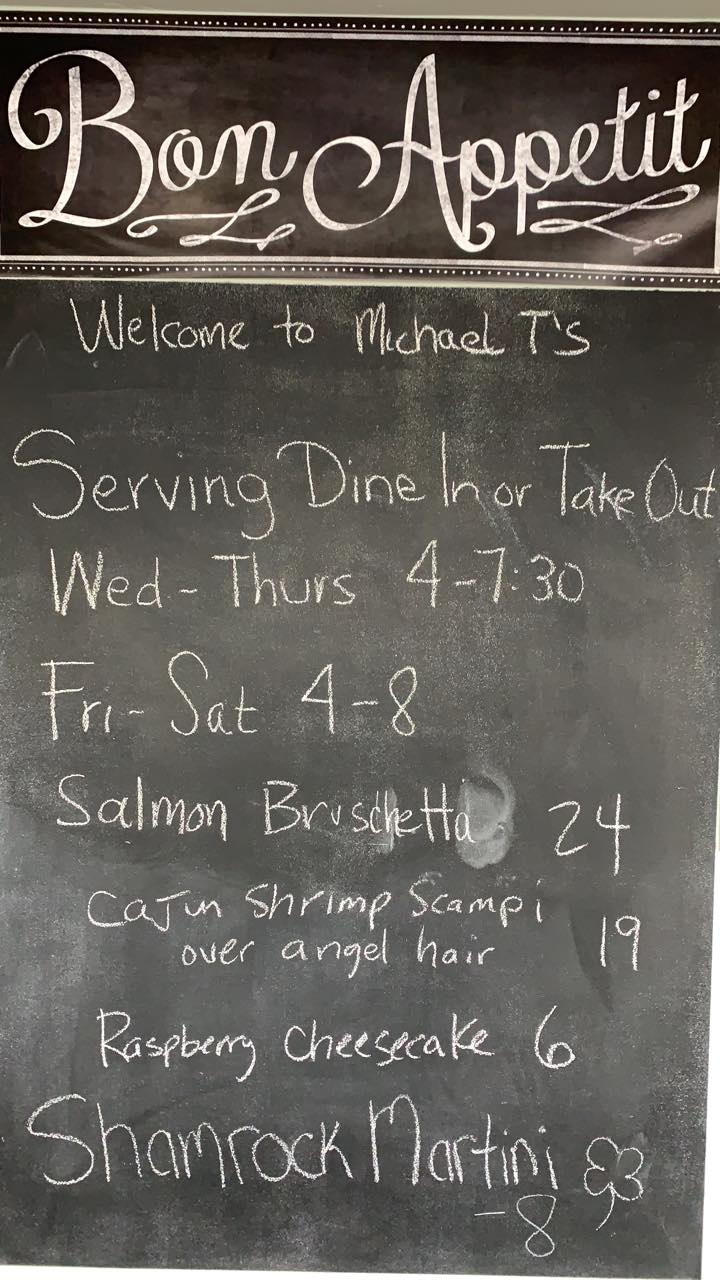 Bon Appetit
Welcome to Michael T's
Serving Dine In or Take Out
Wed - Thurs 4-7:30
Fri - Sat 4-8
Salmon Bruschetta 24
Cajun Shrimp Scampi
over angel hair 19
Raspberry Cheesecake 6
Shamrock Martini
-8